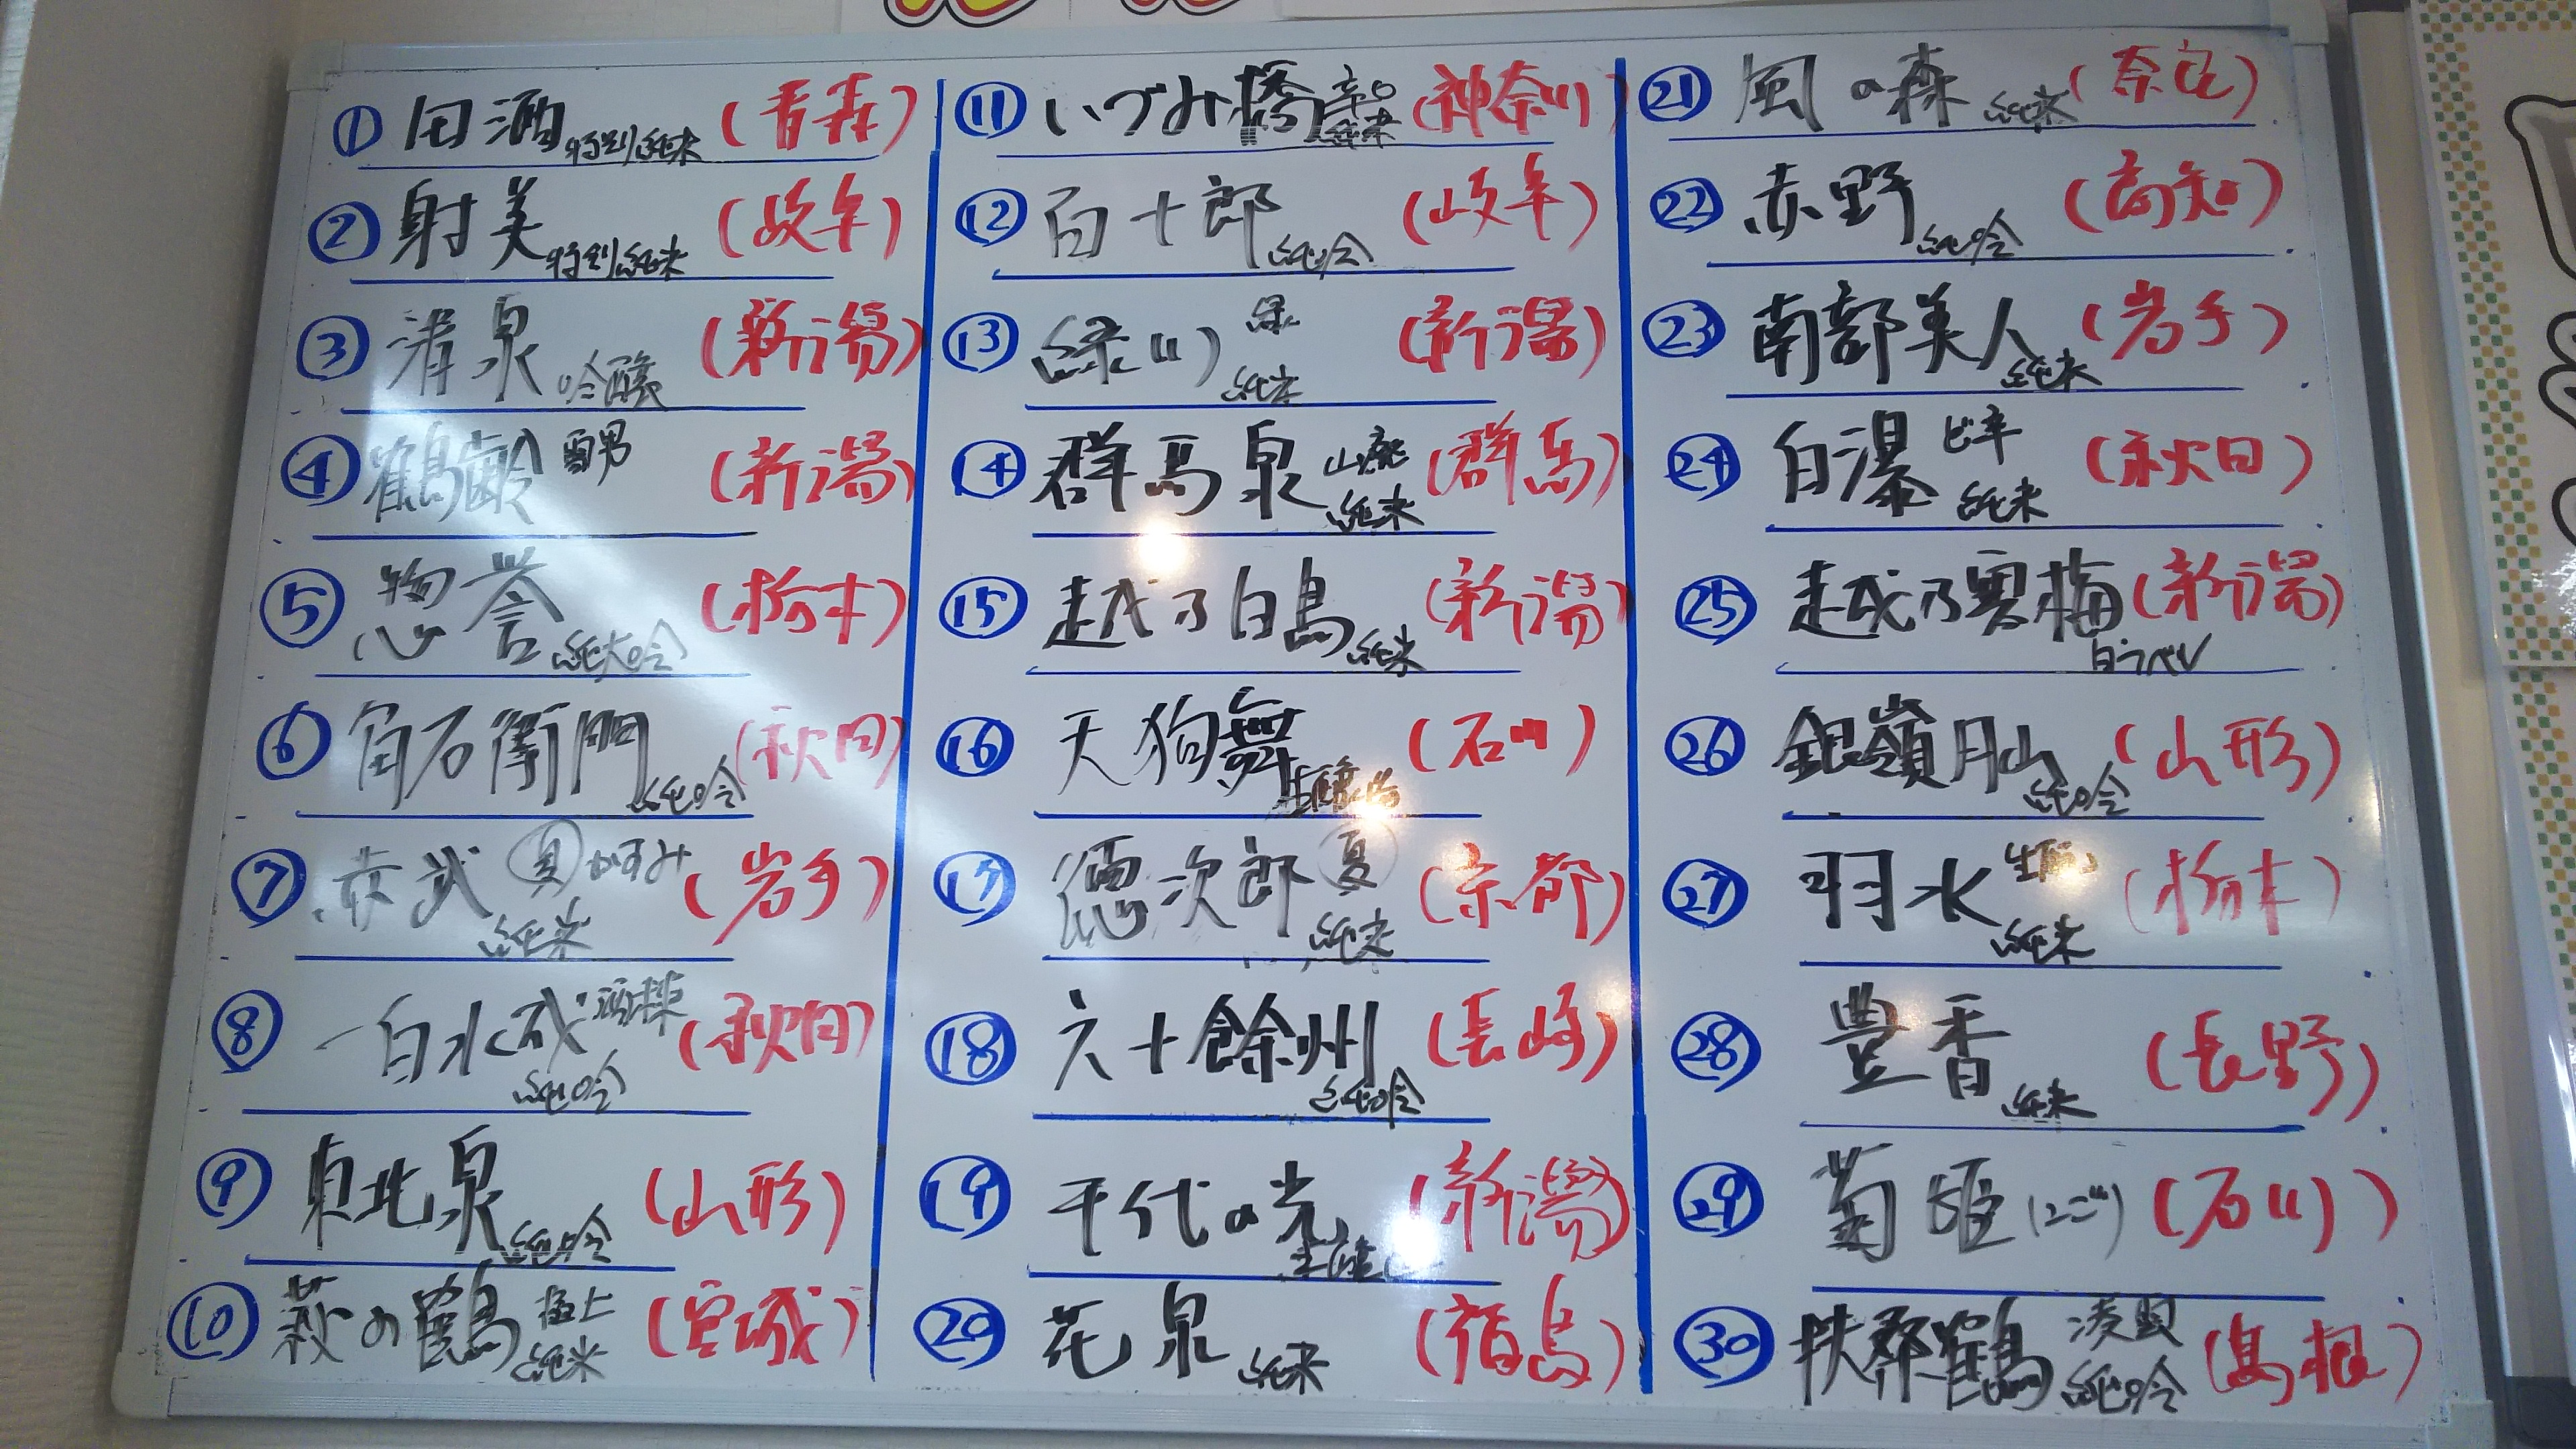 ① 田酒 特別純米 (青森)
② 射美 特別純米 (岐阜)
③ 清泉 吟醸 (新潟)
④ 鶴齢 雪男 (新潟)
⑤ 惣誉 純大吟 (栃木)
⑥ 角右衛門 純吟 (秋田)
⑦ 赤武 夏かすみ 純米 (岩手)
⑧ 一白水成 純吟 (秋田)
⑨ 東北泉 純吟 (山形)
⑩ 萩の鶴 極上 純米 (宮城)
⑪ いづみ橋 辛口 純米 (神奈川)
⑫ 百十郎 純吟 (岐阜)
⑬ 緑川 緑 純米 (新潟)
⑭ 群馬泉 山廃 純米 (群馬)
⑮ 越乃白鳥 純米 (新潟)
⑯ 天狗舞 (石川)
⑰ 徳次郎 夏 純米 (京都)
⑱ 六十餘州 純吟 (長崎)
⑲ 千代の光 (新潟)
⑳ 花泉 純米 (福島)
㉑ 風の森 純米 (奈良)
㉒ 赤野 純吟 (高知)
㉓ 南部美人 純米 (岩手)
㉔ 白瀑 ど辛 純米 (秋田)
㉕ 越乃寒梅 白ラベル (新潟)
㉖ 銀嶺月山 純吟 (山形)
㉗ 羽水 生酛 純米 (栃木)
㉘ 豊香 純米 (長野)
㉙ 菊姫 (にごり) (石川)
㉚ 扶桑鶴 純吟 (島根)